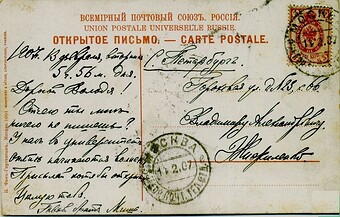 ВСЕМІРНЫЙ ПОЧТОВЫЙ СОЮЗЪ. РОССІЯ.
UNION POSTALE UNIVERSELLE RUSSIE.
ОТКРЫТОЕ ПИСЬМО. — CARTE POSTALE.
1907. 13 февраля
5 ч. 56 м. дня.
Дорогой Володя!
Отчего ты мнѣ
ничего не пишешь?
У насъ въ университетѣ
опять начинаются
Пришли хотя бы открыт
Цѣлую тебя.
Твой братъ Миша.
С. Петербургъ.
Гороховая ул.
Владимиру Александровичу
МОСКВА
14 2 07